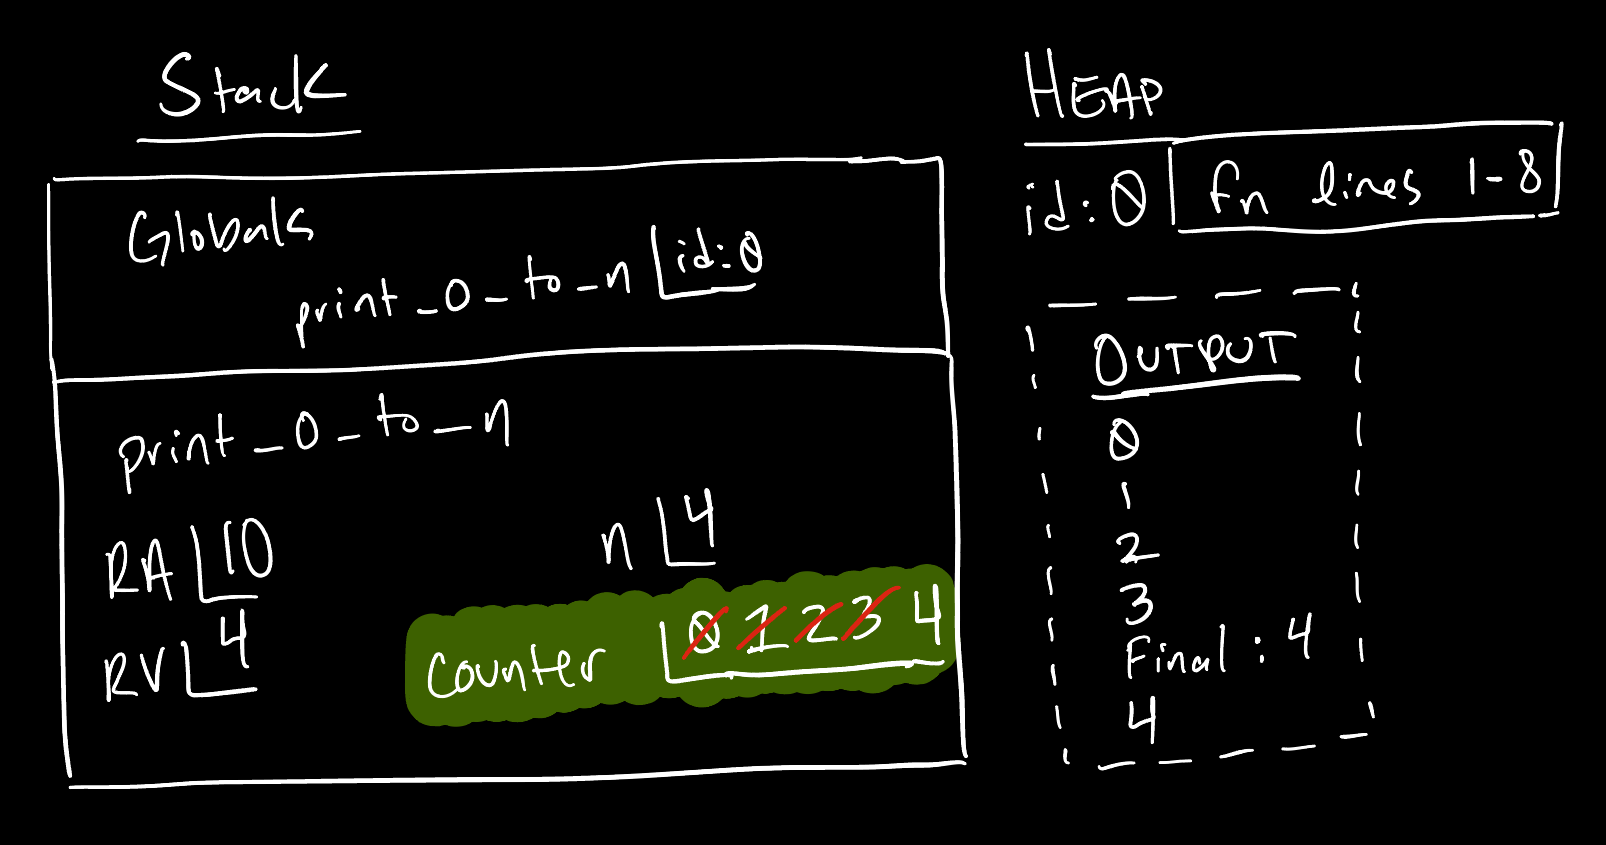 Stack
Globals
print_0_to_n id:0
print_0_to_n
RA 10
n 4
RV 4
Counter 0 1 2 3 4
HEAP
id:0 fn lines 1-8
OUTPUT
0
1
2
3
Final: 4
4